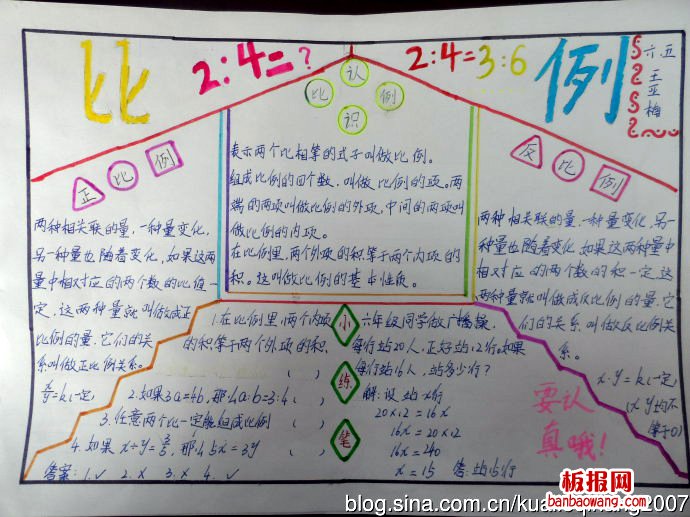 比
2:4=?
2:4=3:6
例
六.五
王亚梅
认
比 例
识
正 比 例
反 比 例
表示两个比相等的式子叫做比例。
组成比例的四个数,叫做比例的项。两
端的两项叫做比例的外项,中间的两项叫
做比例的内项。
在比例里,两个外项的积等于两个内项的
积。这叫做比例的基本性质。
两种相关联的量,一种量变化,
另一种量也随着变化,如果这两
量中相对应的两个数的比值一
定,这两种量就叫做成正
比例的量,它们的关
系叫做正比例关系。
=k(一定)
两种相关联的量,一种量变化,另一
种量也随着变化,如果这两种量中
相对应的两个数的积一定,这
两种量就叫做成反比例的量,它
们的关系叫做反比例关
系。
x·y=k(一定)
(x y均不
等于0)
小
练
笔
1.在比例里,两个内项
的积等于两个外项的积.
( )
2.如果3a=4b,那么a:b=3:4( )
3.任意两个比一定能组成比例 ( )
4.如果x÷y= ,那么5x=3y ( )
答案:1.√ 2.× 3.× 4.√
六年级同学做广播操,
每行站20人,正好站12行。如果
每行站16人,站多少行?
解:设站x行
20×12=16x
16x=20×12
16x=240
x=15 答:站15行
要认
真哦!
板报网
banbaowang.com